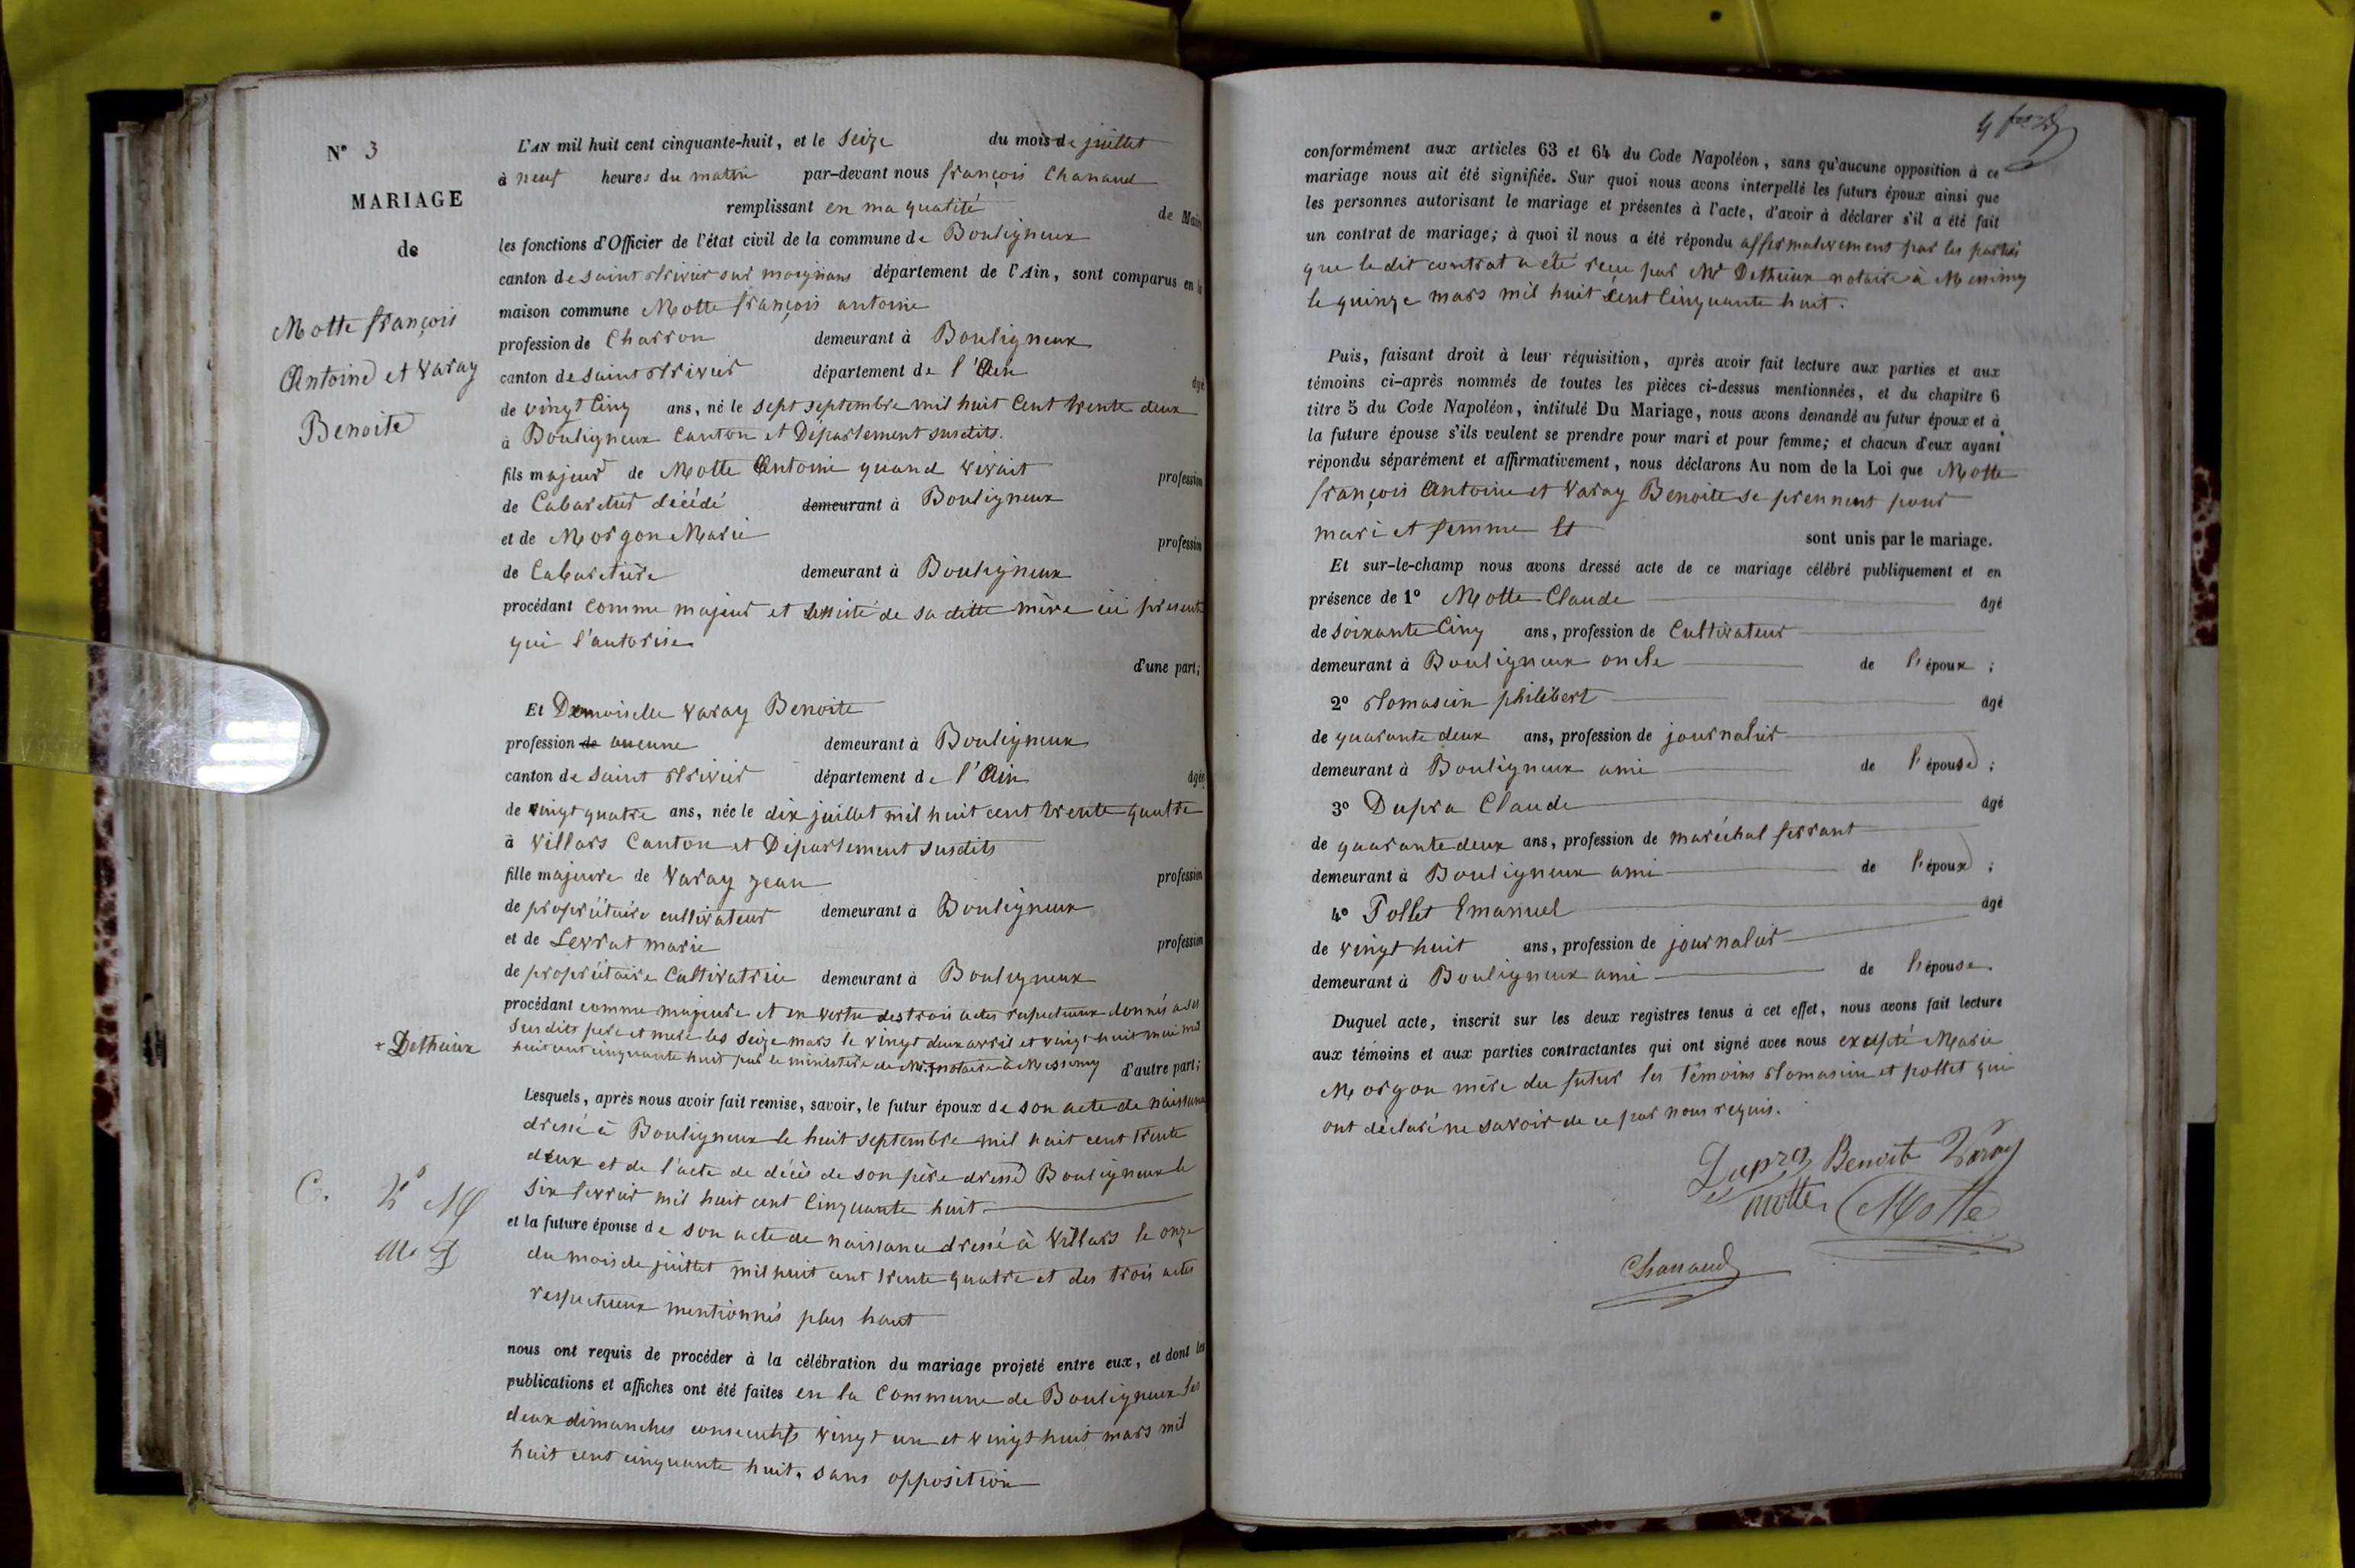 N° 3
MARIAGE
de
Motte françois
Antoine et Varay
Benoite
L'AN mil huit cent cinquante-huit, et le Seize du mois de juillet
à neuf heures du matin par-devant nous françois Chanaud
remplissant en ma qualité de Maire
les fonctions d'Officier de l'état civil de la commune de Bouligneux
canton de saint trivier sur moignans département de l'Ain, sont comparus en la
maison commune Motte françois antoine
profession de Charron demeurant à Bouligneux
canton de saint trivier département de l'Ain âgé
de vingt Cinq ans, né le sept septembre mil huit Cent trente deux
à Bouligneux Canton et Département susdits.
fils majeur de Motte Antoine quand vivait profession
de Cabaretier décédé demeurant à Bouligneux
et de Morgon Marie profession
de Cabaretière demeurant à Bouligneux
procédant comme majeur et assisté de sa ditte mère ici présente
qui l'autorise
d'une part;
Et Demoiselle Varay Benoite
profession de aucune demeurant à Bouligneux
canton de saint trivier département de l'Ain âgée
de vingt quatre ans, née le dix juillet mil huit cent trente quatre
à Villars Canton et Département susdits
fille majeure de Varay jean profession
de propriétaire cultivateur demeurant à Bouligneux
et de Levrat marie profession
de propriétaire Cultivatrice demeurant à Bouligneux
procédant comme majeure et en vertu des trois actes respectueux donnés a ses
susdits père et mère les seize mars le vingt deux avril et vingt huit mai mil
huit cent cinquante huit par le ministère de Mr. + notaire à Messimy d'autre part;
+ Detheüx
Lesquels, après nous avoir fait remise, savoir, le futur époux de son acte de naissance
dressé à Bouligneux le huit septembre mil huit cent trente
deux et de l'acte de décès de son père dressé Bouligneux le
six fevrier mil huit cent Cinquante huit.
C. V M
et la future épouse de son acte de naissance dressé à Villars le onze
du mois de juillet mil huit cent trente quatre et des trois actes
respectueux mentionnés plus haut
nous ont requis de procéder à la célébration du mariage projeté entre eux, et dont les
publications et affiches ont été faites en la Commune de Bouligneux les
deux dimanches consecutifs vingt un et vingt huit mars mil
huit cent cinquante huit. sans opposition
conformément aux articles 63 et 64 du Code Napoléon, sans qu'aucune opposition à ce
mariage nous ait été signifiée. Sur quoi nous avons interpellé les futurs époux ainsi que
les personnes autorisant le mariage et présentes à l'acte, d'avoir à déclarer s'il a été fait
un contrat de mariage; à quoi il nous a été répondu affirmativement par les parties
que le dit contrat a été reçu par Mr Detheüx notaire à Messimy
le quinze mars mil huit Cent Cinquante huit.
Puis, faisant droit à leur réquisition, après avoir fait lecture aux parties et aux
témoins ci-après nommés de toutes les pièces ci-dessus mentionnées, et du chapitre 6
titre 5 du Code Napoléon, intitulé Du Mariage, nous avons demandé au futur époux et à
la future épouse s'ils veulent se prendre pour mari et pour femme; et chacun d'eux ayant
répondu séparément et affirmativement, nous déclarons Au nom de la Loi que Motte
françois Antoine et Varay Benoite se prennent pour
mari et femme et sont unis par le mariage.
Et sur-le-champ nous avons dressé acte de ce mariage célébré publiquement et en
présence de 1° Motte Claude âgé
de soixante Cinq ans, profession de Cultivateur
demeurant à Bouligneux oncle de l'époux;
2° thomasin philibert âgé
de quarante deux ans, profession de journalier
demeurant à Bouligneux ami de l'épouse;
3° Dupra Claude âgé
de quarante deux ans, profession de maréchal ferrant
demeurant à Bouligneux ami de l'époux;
4° Pollet Emanuel âgé
de vingt huit ans, profession de journalier
demeurant à Bouligneux ami de l'épouse.
Duquel acte, inscrit sur les deux registres tenus à cet effet, nous avons fait lecture
aux témoins et aux parties contractantes qui ont signé avec nous excepté Marie
Morgon mère du futur les témoins thomasin et pollet qui
ont déclaré ne savoir de ce par nous requis.
Dupra Benoite Varay
Motte Motte
Chanaud